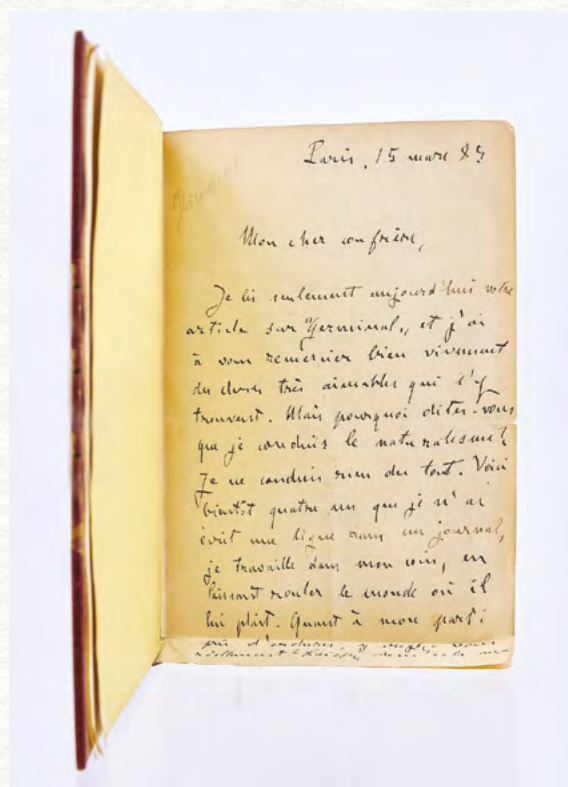 Paris, 15 mars 85
Mon cher confrère,
Je lis seulement aujourd'hui votre
article sur "Germinal", et j'ai
à vous remercier bien vivement
des choses très aimables qui s'y
trouvent. Mais pourquoi dites-vous
que je conduis le naturalisme?
Je ne conduis rien du tout. Voici
bientôt quatre ans que je n'ai
écrit une ligne dans un journal,
je travaille dans mon coin, en
laissant rouler le monde où il
lui plaît. Quant à mon parti
pris d'ordures,